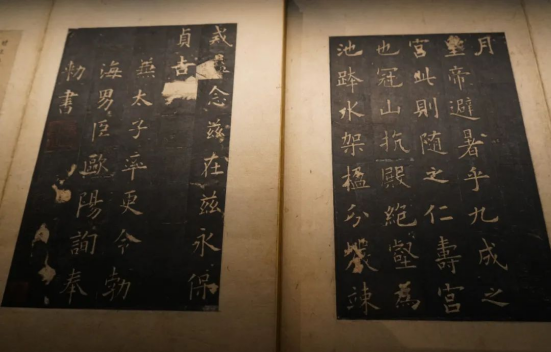 月
皇帝避暑乎九成之
宮此則隨之仁壽宮
也冠山抗殿絕壑為
池跨水架楹分巖竦
戒念茲在茲永保
貞吉
兼太子率更令勃
海男臣歐陽詢奉
勑書